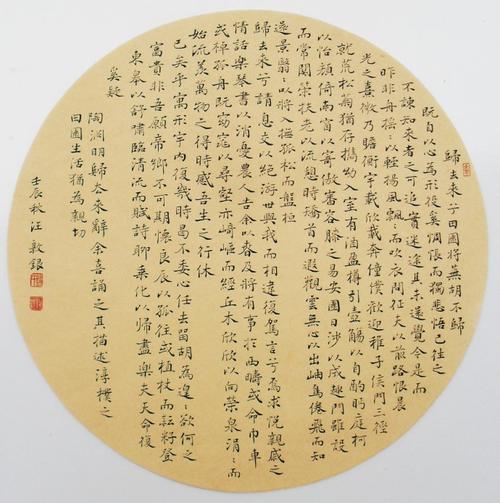 歸去來兮田園將蕪胡不歸
既自以心為形役奚惆悵而獨悲悟已往之
不諫知來者之可追實迷途其未遠覺今是而
昨非舟搖以輕揚風飄〻而吹衣問征夫以前路恨晨
光之熹微乃瞻衡宇載欣載奔僮僕歡迎稚子侯門三徑
就荒松菊猶存攜幼入室有酒盈樽引壺觴以自酌眄庭柯
以怡顏倚南窗以寄傲審容膝之易安園日涉以成趣門雖設
而常關策扶老以流憩時矯首而遐觀雲無心以出岫鳥倦飛而知
還景翳〻以將入撫孤松而盤桓
歸去來兮請息交以絕游世與我而相違復駕言兮焉求悅親戚之
情話樂琴書以消憂農人告余以春及將有事於西疇或命巾車
或棹孤舟既窈窕以尋壑亦崎嶇而經丘木欣欣以向榮泉涓〻而
始流羨萬物之得時感吾生之行休
已矣乎寓形宇內復幾時曷不委心任去留胡為遑〻欲何之
富貴非吾願帝鄉不可期懷良辰以孤往或植杖而耘耔登
東皋以舒嘯臨清流而賦詩聊乘化以歸盡樂夫天命復
奚疑
陶淵明歸去來辭余喜誦之其描述淳樸之
田園生活猶為親切
壬辰秋汪敦銀